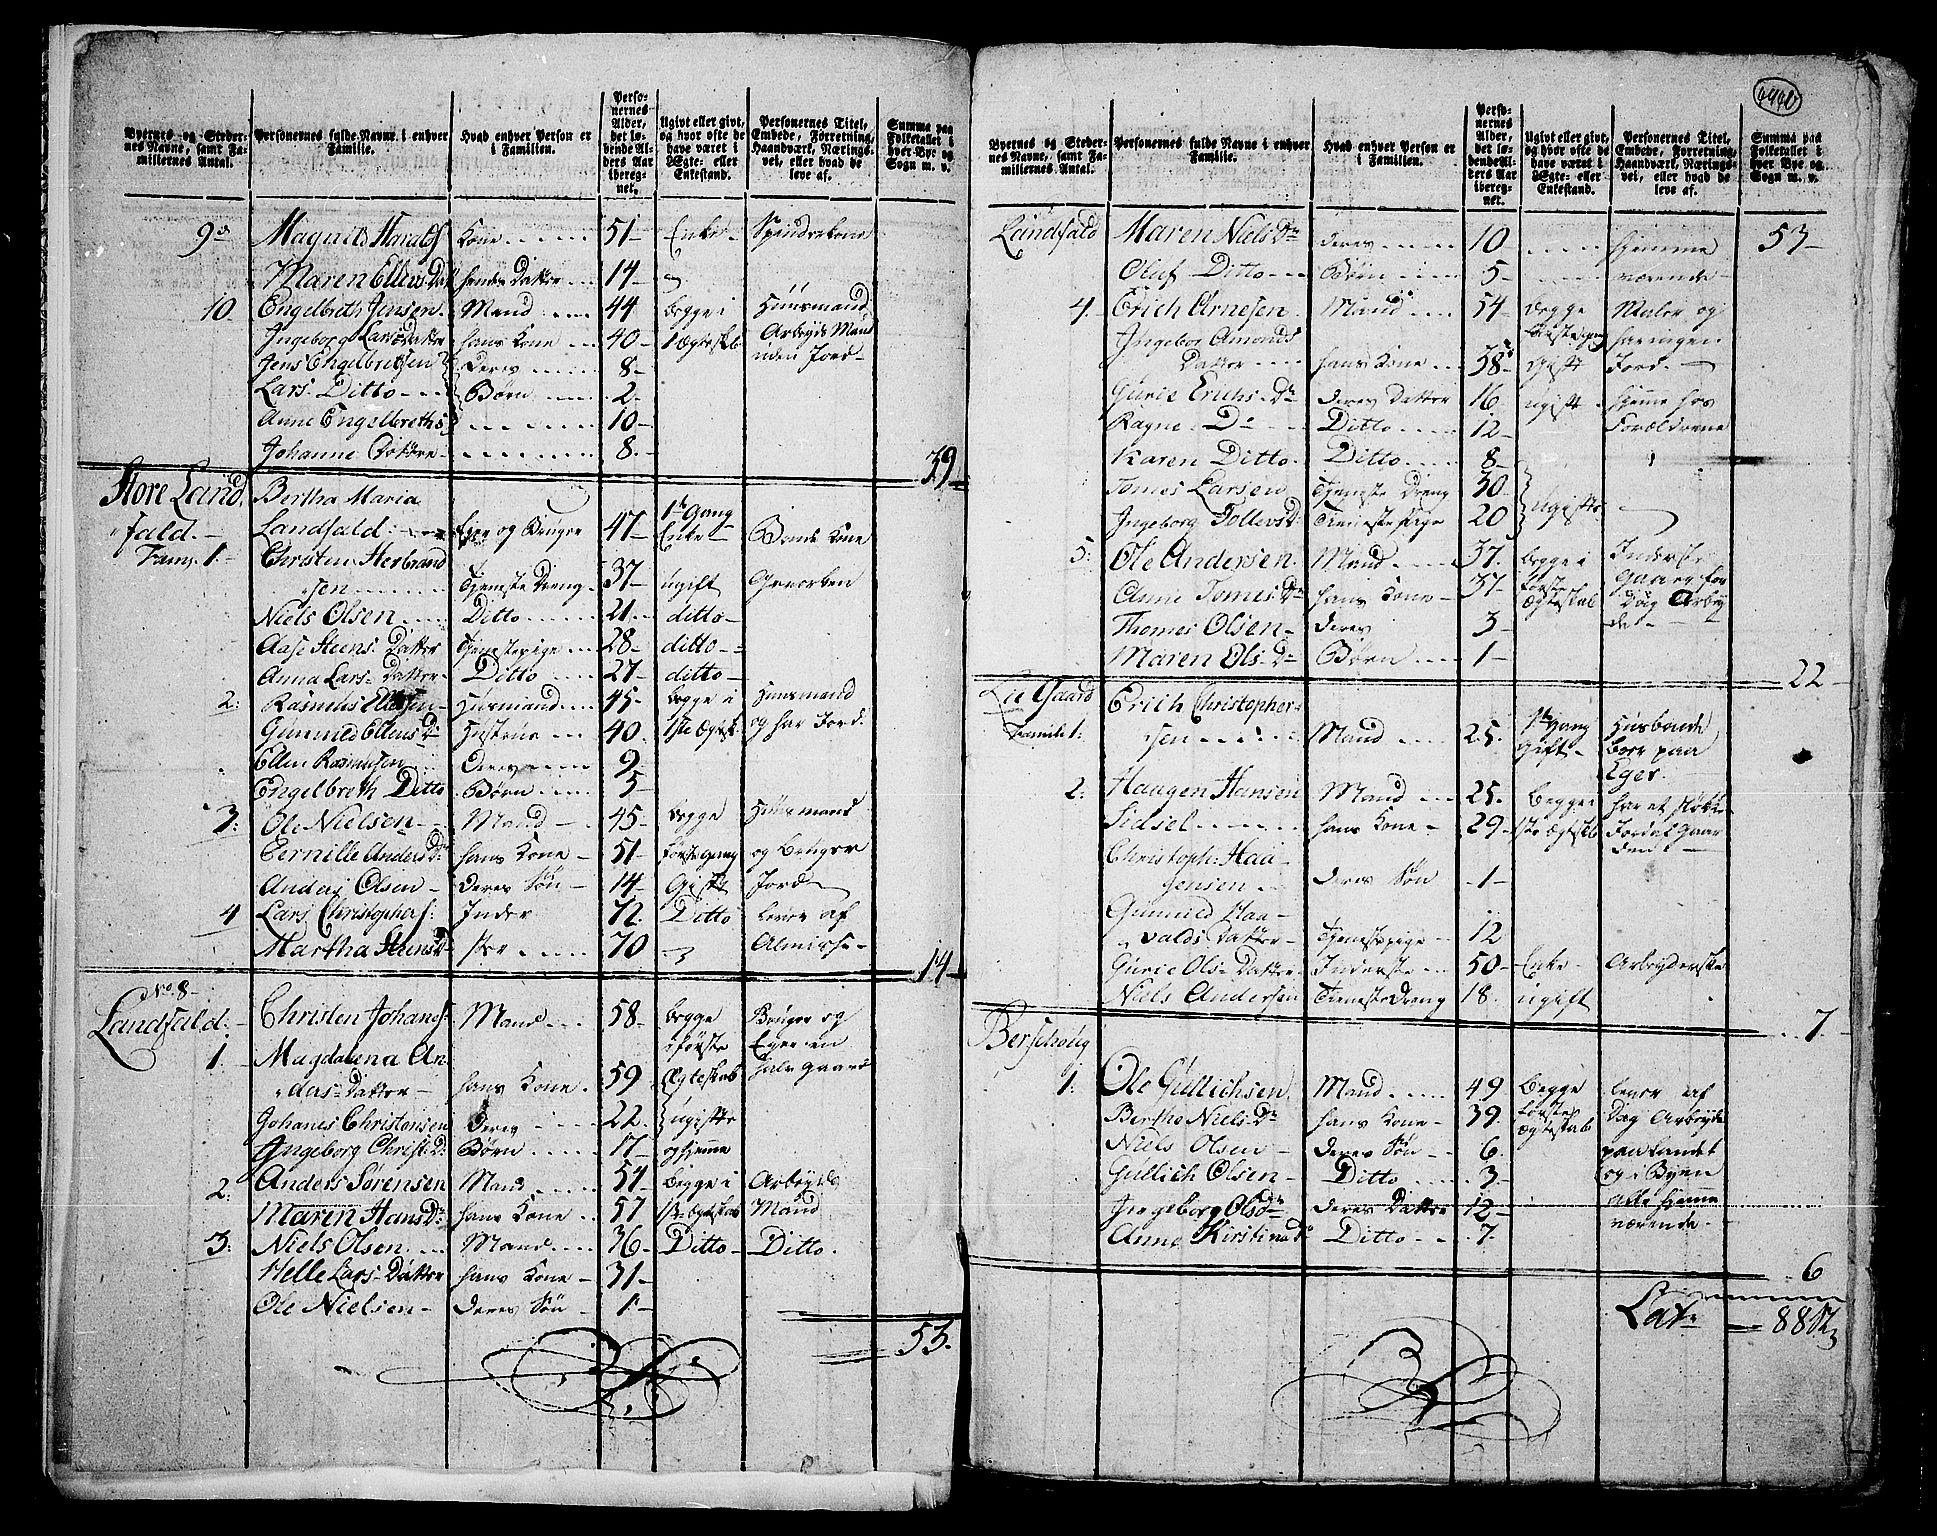 Byernes og Steder-
nes Navne, samt Fa-
miliernes Antal.
Personernes fulde Navne i enhver
Familie.
Hvad enhver Person er
i Familien.
Perso-
nernes
Alder,
det lø-
bende Al-
ders Aar
iberegn-
net.
Ugivt eller givt,
og hvor ofte de
have været i
Ægte- eller
Enkestand.
Personernes Titel,
Embede, Forretning,
Haandværk, Nærings-
vei, eller hvad de
leve af.
Summa paa
Folketallet i
hver Bye og
Sogn m. v.
9de Magnild Haralds Kone 51 Enke Spindrekone
Maren Ellevs Dat hendes Datter 14
10 Engelbreth Jensen Mand 44 begge i Huusmand
Ingeborg Lars Datter hans Kone 40 1 Ægteskb Arbeyds Mand
Jens Engelbretsen Deres 8 uden Jord
Lars Ditto Børn 2
Anne Engelbreths 10
Johanne Døttre 8
39
Store Land Bertha Maria
fald. Landfald Eyer og Bruger 47 1te Gang Enke Bonde Kone
Fam. 1. Christen Herbrand
sen Tjeneste Dreng 37 ugift Gevorben
Niels Olsen Ditto 21 ditto
Aase Steens Datter Tjenestepige 28 ditto
Anna Lars Datter Ditto 27 ditto
2: Rasmus Ellefsen Huusmand 45 begge i Huusmand
Gunnild Ellens Dr Hustrue 40 1ste Ægtesk og har Jord
Ellen Rasmusen Deres 9
Engelbreth Ditto Børn 5
3: Ole Nielsen Mand 45 begge Huusmand
Pernille Anders Dr hans Kone 51 første gang og bruger
Anders Olsen Deres Søn 14 Gift Jord
4 Lars Christophers: Inder 72 Ditto lever af
Martha Steensd ster 70 Almisse
14
No. 8
Landfald Christen Johans Mand 58 begge Bruger og
1. Magdalena An i første Eyer en
ders Datter hans Kone 59 Ægteskab halv gaard
Johanes Christensen Deres 22 ugifte
Ingeborg Christ: D: Børn 17 og hjemme
2: Anders Sørensen Mand 54 begge i Arbeyds
Maren Hans Dr hans Kone 57 1te Ægteskab Mand
3: Niels Olsen Mand 36 Ditto Ditto
Helle Lars Datter hans Kone 31
Ole Nielsen Deres Søn 1
53.
Byernes og Steder-
nes Navne, samt Fa-
miliernes Antal.
Personernes fulde Navne i enhver
Familie.
Hvad enhver Person er
i Familien.
Perso-
nernes
Alder,
det lø-
bende Al-
ders Aar
iberegn-
net.
Ugivt eller givt,
og hvor ofte de
have været i
Ægte- eller
Enkestand.
Personernes Titel,
Embede, Forretning,
Haandværk, Nærings-
vei, eller hvad de
leve af.
Summa paa
Folketallet i
hver Bye og
Sogn m. v.
Landfald Maren Niels Dr deres 10 hjemme 53
Oluf Ditto Børn 5 værende
4. Erich Arnesen Mand 54 begge Maler og
Ingebor Amonds første gang har ingen
Datter hans Kone 38 Gift Jord
Gurie Erichs Dr deres Datter 16 ugift hjeme hos
Ragne D Ditto 12 Forældrene
Karen Ditto Ditto 8
Tomes Larsen Tjeneste Dreng 30 ugifte
Ingeborg Tollevsd: Tieneste pige 20
5: Ole Andersen Mand 37 begge i Inderste
Anne Tomes Dr hans Kone 37 første Gaaer for
Thomes Olsen deres 3 Ægteskab Dag Arbey
Maren Ols Dr Børn 1 de
22
Lie Gaard Erich Christopher
Famili 1: sen Mand 25 1te Gang Gift Husbonde boer paa Eger.
2: Haagen Hansen Mand 25 Begge i har et støkke
Sidsel hans Kone 29 1ste Ægteskb Jord af Gaar
Christoph: Haa den
gensen deres Søn 1
Gunnild Haa
valds Datter Tjenestepige 12
Gurie Ols Datter Inderste 50 Enke Arbeyderske
Niels Andersen Tieneste Dreng 18 ugift
7
Berschoug
1. Ole Gullichsen Mand 49 Begge lever af
Berthe Niels Dr hans Kone 39 første Dag Arbeyde
Niels Olsen deres Søn 6 Ægteskab paa Landet
Gullich Olsen Ditto 3 og i Byen
Ingeborg Ols Dr deres Datter 12 alle hjeme
Anne Kirstinad Ditto 7 værende
6
Lat. 88